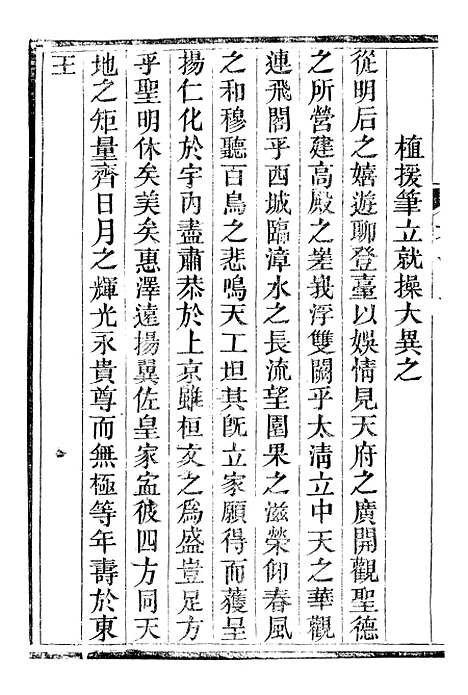 植援筆立就操大異之
從明后之嬉遊聊登臺以娛情見天府之廣開觀聖德
之所營建高殿之嵳峩浮雙闕乎太淸立中天之華觀
連飛閣乎西城臨漳水之長流望園果之滋榮仰春風
之和穆聽百鳥之悲鳴天工坦其旣立家願得而獲呈
揚仁化於宇內盡肅恭於上京雖桓文之爲盛豈足方
乎聖明休矣美矣惠澤遠揚翼佐皇家寍彼四方同天
地之矩量齊日月之輝光永貴尊而無極等年壽於東
王